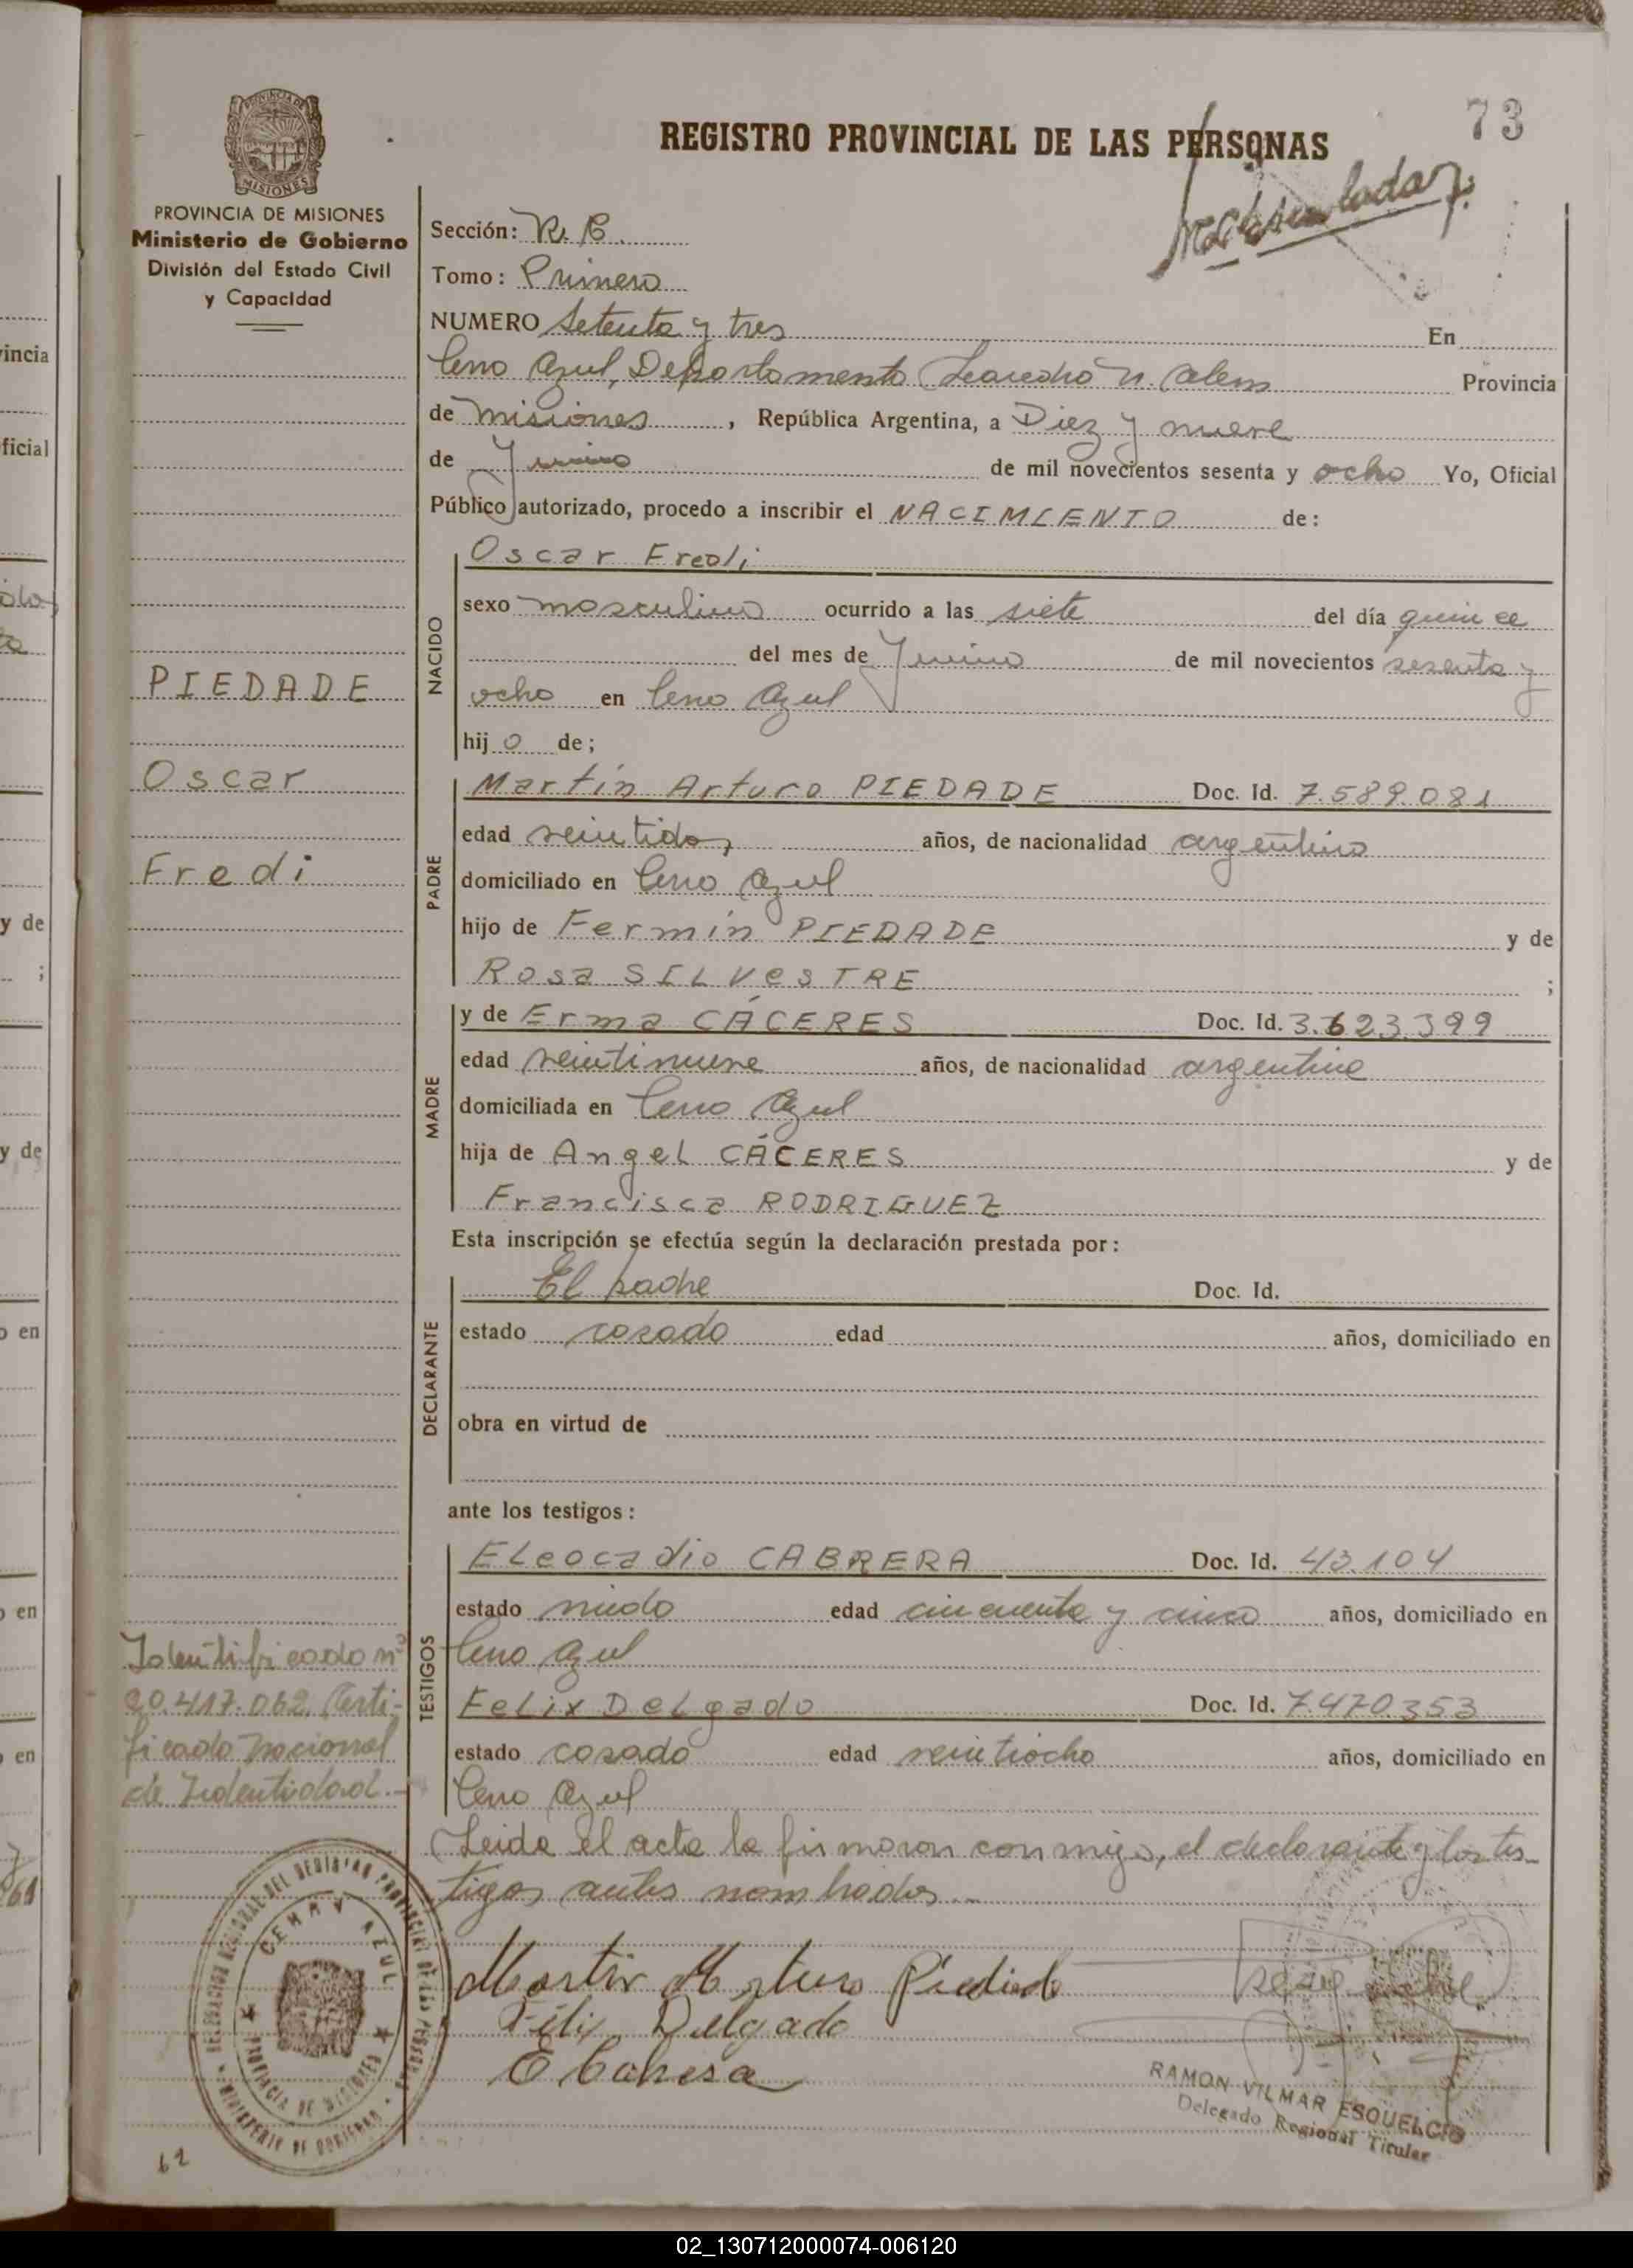 73
REGISTRO PROVINCIAL DE LAS PERSONAS
PROVINCIA DE MISIONES
Ministerio de Gobierno
División del Estado Civil
y Capacidad
Sección: R. C.
Tomo: Primero
NUMERO Setenta y tres En
Cerro Azul, Departamento Leandro N. Alem Provincia
de Misiones, República Argentina, a Diez y nueve
de Junio de mil novecientos sesenta y ocho Yo, Oficial
Público autorizado, procedo a inscribir el NACIMIENTO de:
NACIDO
Oscar Fredi
sexo masculino ocurrido a las siete del día quince
del mes de Junio de mil novecientos sesenta y
ocho en Cerro Azul
hijo de;
PIEDADE
Oscar
Fredi
PADRE
Martín Arturo PIEDADE Doc. Id. 7.589.081
edad veintidos años, de nacionalidad argentino
domiciliado en Cerro Azul
hijo de Fermín PIEDADE y de
Rosa SILVESTRE ;
MADRE
y de Erma CÁCERES Doc. Id. 3.623.399
edad veintinueve años, de nacionalidad argentina
domiciliada en Cerro Azul
hija de Angel CÁCERES y de
Francisca RODRIGUEZ
Esta inscripción se efectúa según la declaración prestada por:
DECLARANTE
El padre Doc. Id.
estado casado edad años, domiciliado en
obra en virtud de
ante los testigos:
TESTIGOS
Eleocadio CABRERA Doc. Id. 43.104
estado viudo edad cincuenta y cinco años, domiciliado en
Cerro Azul
Felix Delgado Doc. Id. 7.470.353
estado casado edad veintiocho años, domiciliado en
Cerro Azul
Identificado nº
20.417.062. Certi-
ficado Nacional
de Identidad.-
Leida el acta la firmaron conmigo, el declarante y los tes-
tigos antes nombrados.-
Martin Arturo Piedade
Félix Delgado
E Cabrera
RAMON VILMAR ESQUELCIO
Delegado Regional Titular
CERRO AZUL
PROVINCIA DE MISIONES
MINISTERIO DE GOBIERNO
62
02_130712000074-006120